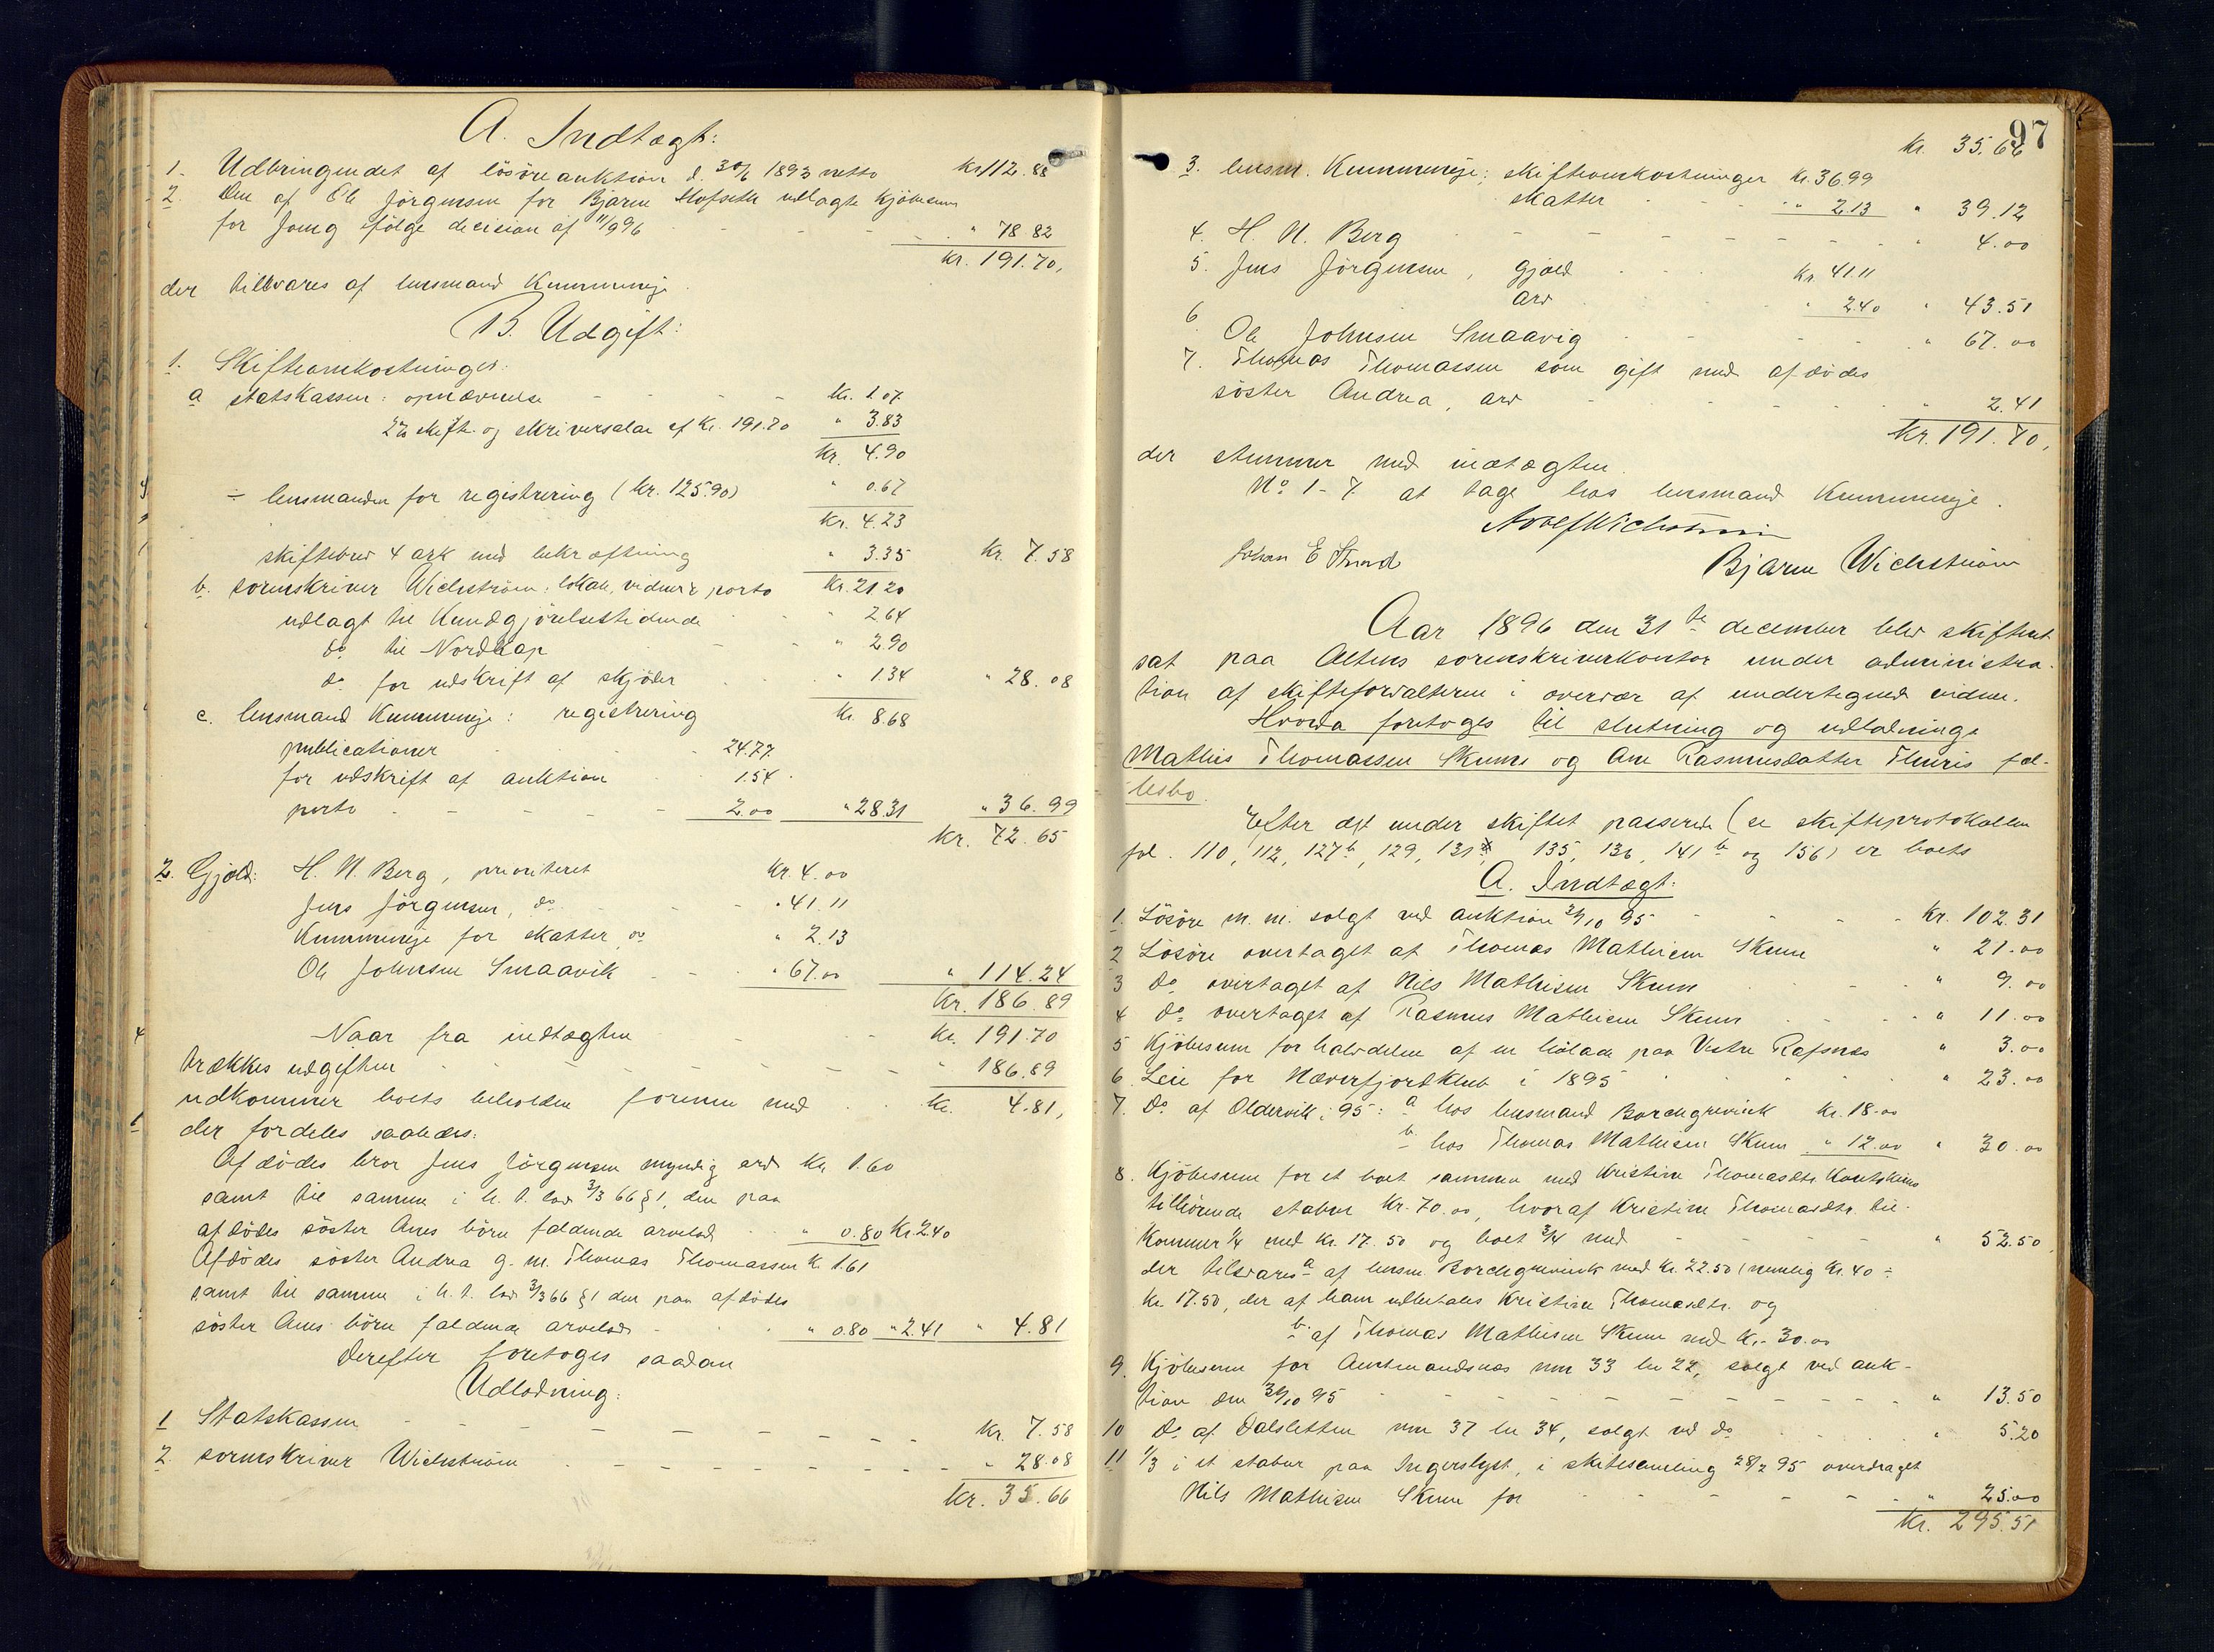 A. Indtægt:
1. Udbringendet af lösöreauktion d. 30/6 1893 netto Kr. 112.88
2. Den af Ole Jörgensen for Bjarne Hofseth udlagte kjöbesum
for ifölge decision af 11/9 96 - - - " 78.82
Kr. 191.70,
der tilsvares af lensmand Kummeneje.
B. Udgift:
1. Skifteomkostninger:
a statskassen: opnævnelse - - - - Kr. 1.07
2% skifte- og skriversalær af Kr. 191.70 " 3.83
Kr. 4.90
÷ lensmanden for registrering (Kr. 125.90) " 0.67
Kr. 4.23
skiftebrev 4 ark med bekræftning " 3.35 Kr. 7.58
b. sorenskriver Wichström: lokale, vidner & porto Kr. 21.20
udlagt til Kundgjörelsestidende " 2.64
do til Nordkap - - " 2.90
do for udskrift af skjöder " 1.34 " 28.08
c. lensmand Kummeneje: registrering Kr. 8.68
publicationer - 24.77
for udskrift af auktion 1.54
porto - - - - 2.00 " 28.31 " 36.99
Kr. 72.65
2. Gjæld: H. N. Berg, prioriteret Kr. 4.00
Jens Jörgensen, do - - " 41.11
Kummeneje for skatter do " 2.13
Ole Johnsen Smaavik - " 67.00 " 114.24
Kr. 186.89
Naar fra indtægten - - Kr. 191.70
trækkes udgiften - - - - " 186.89
udkommer boets beholdne formue med Kr. 4.81,
der fordeles saaledes:
Afdödes bror Jens Jörgensen myndig arv Kr. 1.60
samt til samme i h. t. lov 3/3 66 § 1, den paa
afdödes söster Anes börn faldende arvelod " 0.80 Kr. 2.40
Afdödes söster Andrea g. m. Thomas Thomassen Kr. 1.61
samt til samme i h. t. lov 3/3 66 § 1 den paa afdödes
söster Anes börn faldende arvelod " 0.80 " 2.41 " 4.81
Derefter foretoges saadan
Udlodning:
1 Statskassen - - - - - - Kr. 7.58
2. sorenskriver Wichström - - - - - " 28.08
Kr. 35.66
97
Kr. 35.66
3. lensm. Kummeneje: skifteomkostninger Kr. 36.99
skatter - - " 2.13 " 39.12
4. H. N. Berg - - - - - - " 4.00
5. Jens Jörgensen, gjæld - - Kr. 41.11
arv " 2.40 " 43.51
6 Ole Johnsen Smaavig " 67.00
7. Thomas Thomassen som gift med afdödes
söster Andrea, arv - - - - " 2.41
Kr. 191.70,
der stemmer med indtægten.
No 1-7 at tage hos lensmand Kummeneje.
Adolf Wichström
Johan E Strand
Bjarne Wichström
Aar 1896 den 31te december blev skifteret
sat paa Altens sorenskriverkontor under administra-
tion af skifteforvalteren i overvær af undertegnede vidner.
Hvorda foretoges til slutning og udlodning
Mathis Thomassen Skums og Ane Rasmusdatter Thuris fæl-
lesbo.
Efter det under skiftet passerede (se skifteprotokollen
fol. 110, 112, 127b, 129, 131, 135, 136, 141b og 156) er boets
A. Indtægt:
1. Lösöre m. m. solgt ved auktion 30/10 95 - - - - Kr. 102.31
2 Lösöre overtaget af Thomas Mathisen Skum " 21.00
3 do overtaget af Nils Mathisen Skum " 9.00
4 do overtaget af Rasmus Mathisen Skum " 11.00
5 Kjöbesum for halvdelen af en hölade paa Vestre Rafsnes " 3.00
6. Leie for Næverfjordklub i 1895 " 23.00
7. Do af Oldervik i 95: a hos lensmand Borchgrevink Kr. 18.00
b hos Thomas Mathisen Skum " 12.00 " 30.00
8. Kjöbesum for et boet sammen med Kristine Thomasdtr. Kautokeino
tilhörende stabur Kr. 70.00, hvoraf Kristine Thomasdtr. til-
kommer 1/4 med Kr. 17.50 og boet 3/4 med - - - - " 52.50,
der tilsvares a af lensm. Borchgrevink med Kr. 22.50 (nemlig Kr. 40 ÷
Kr. 17.50, der af ham udbetales Kristine Thomasdtr. og
b. af Thomas Mathisen Skum med Kr. 30.00
9. Kjöbesum for Amtmandsnæs mn 33 ln 22, solgt ved auk-
tion den 30/10 95 - - - - - - - - " 13.50
10 Do af Dalsletten mn 37 ln 34, solgt ved do " 5.20
11 1/3 i et stabur paa Ingerslyst, i skiftesamling 28/2 95 overdraget
Nils Mathisen Skum for - - - - - - " 25.00
Kr. 295.51